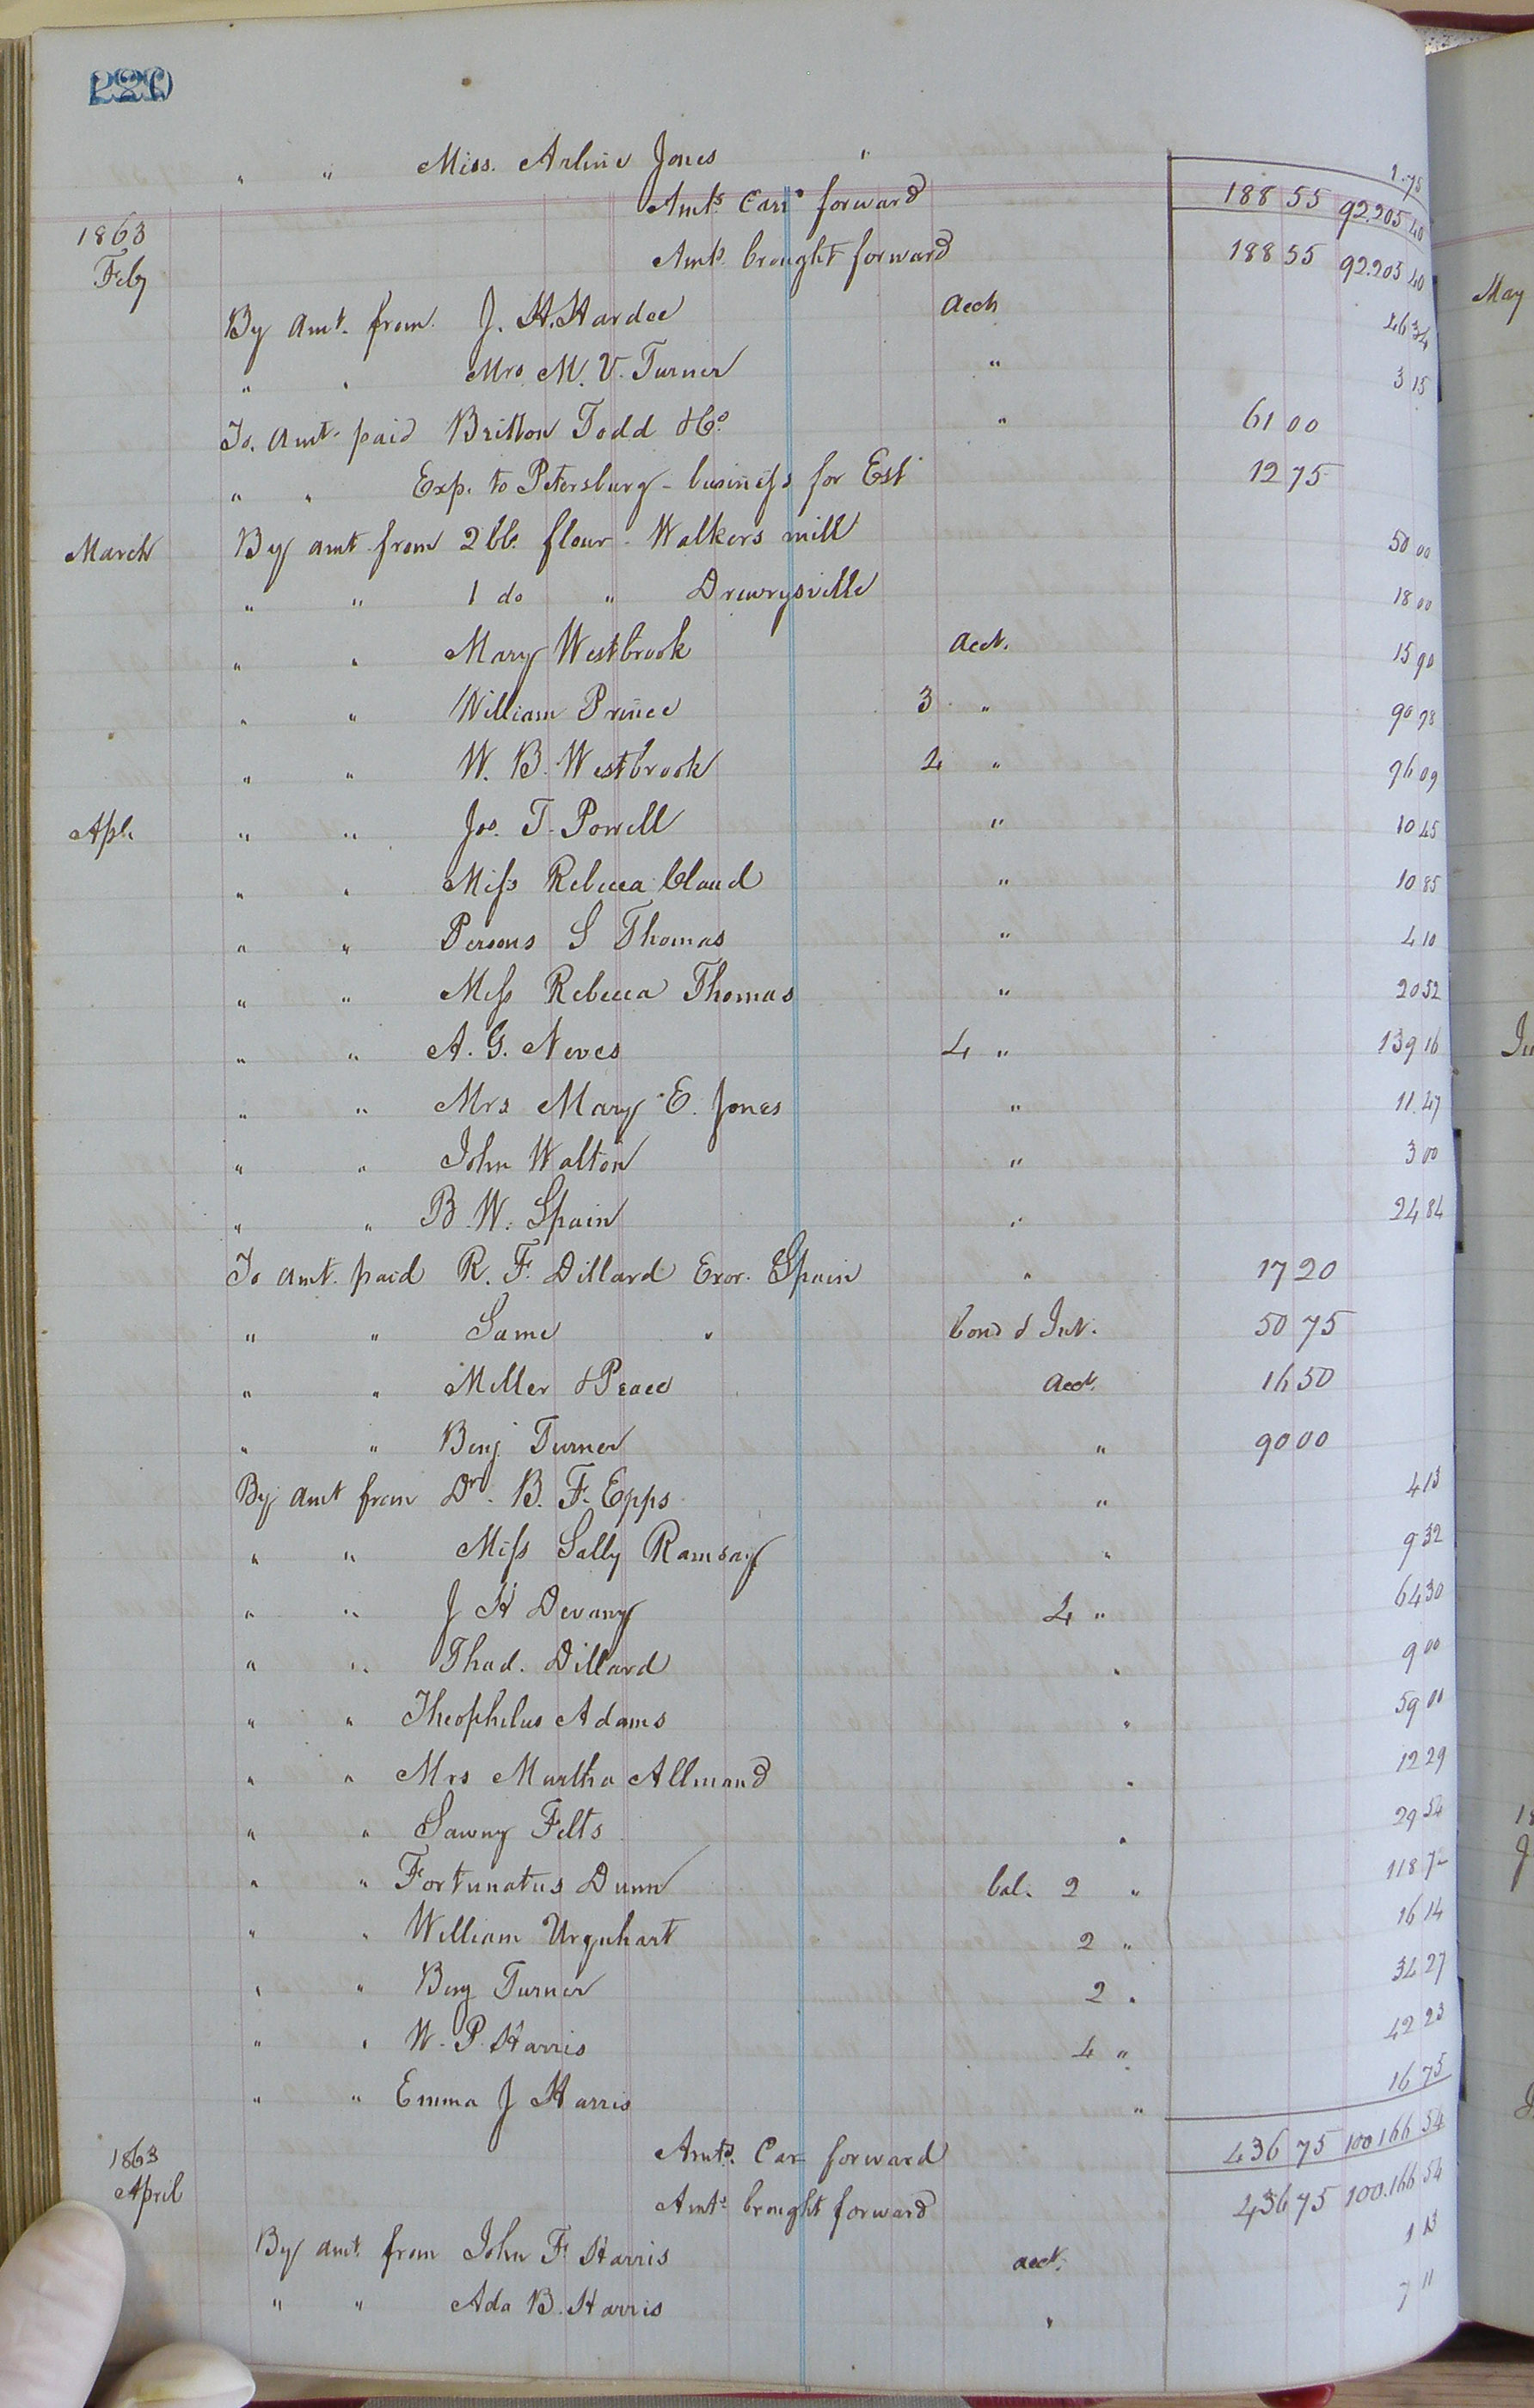 220
" " Miss. Arline Jones " 1.75
Amts. Carr<sup>d</sup> forward 188 55 92.205 40
1863
Feby Amts. brought forward 188 55 92.205 40
By Amt. from J. H. Hardee Acct 46 34
" " Mrs M. V. Turner " 3 15
To. Amt. paid Britton Todd & Co. " 61 00
" " Exp. to Petersburg - business for Est 12 75
March By amt from 2 bb. flour - Walkers mill 50 00
" " 1 do " Drewrysville 18 00
" " Mary Westbrook Acct. 15 90
" " William Prince 3 " 90 78
" " W. B. Westbrook 2 " 96 09
Apl. " " Jos. T. Powell " 10 45
" " Miss Rebecca Claud " 10 85
" " Persons S Thomas " 4 10
" " Miss Rebecca Thomas " 20 52
" " A. G. Neves 4 " 139 16
" " Mrs Mary E. Jones " 11.47
" " John Walton " 3 00
" " B. W. Spain " 24 84
To amt. paid R. F. Dillard Exor. Spain " 17 20
" " Same " bond & Int. 50 75
" " Miller & Peace Acct. 16 50
" " Benj Turner " 90 00
By amt from Dr. B. F. Epps " 4 13
" " Miss Sally Ramsay " 9 32
" " J H Devany 4 " 64 30
" " Thad. Dillard " 9 00
" " Theophilus Adams " 59 00
" " Mrs Martha Allmand " 12 29
" " Sawny Felts " 29 54
" " Fortunatus Dunn bal. 2 " 118 72
" " William Urquhart 2 " 16 14
" " Benj Turner 2 " 34 27
" " W. P. Harris 4 " 42 23
" " Emma J Harris " 16 75
Amts. Car forward 436 75 100 166 54
1863
April Amts brought forward 436 75 100.166 54
By amt. from John F. Harris acct. 1 13
" " Ada B. Harris " 7 11
May